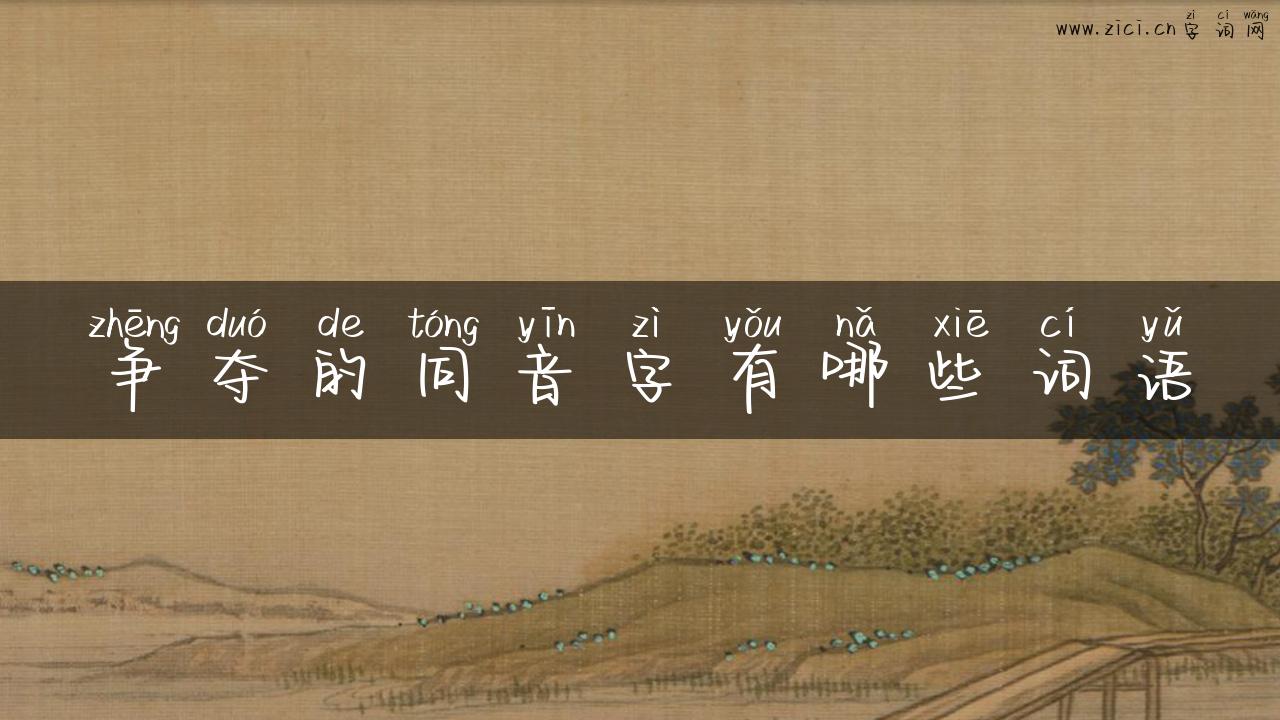 zì cí wǎng
www.zici.cn字词网
zhēng duó de tóng yīn zì yǒu nǎ xiē cí yǔ
争夺的同音字有哪些词语